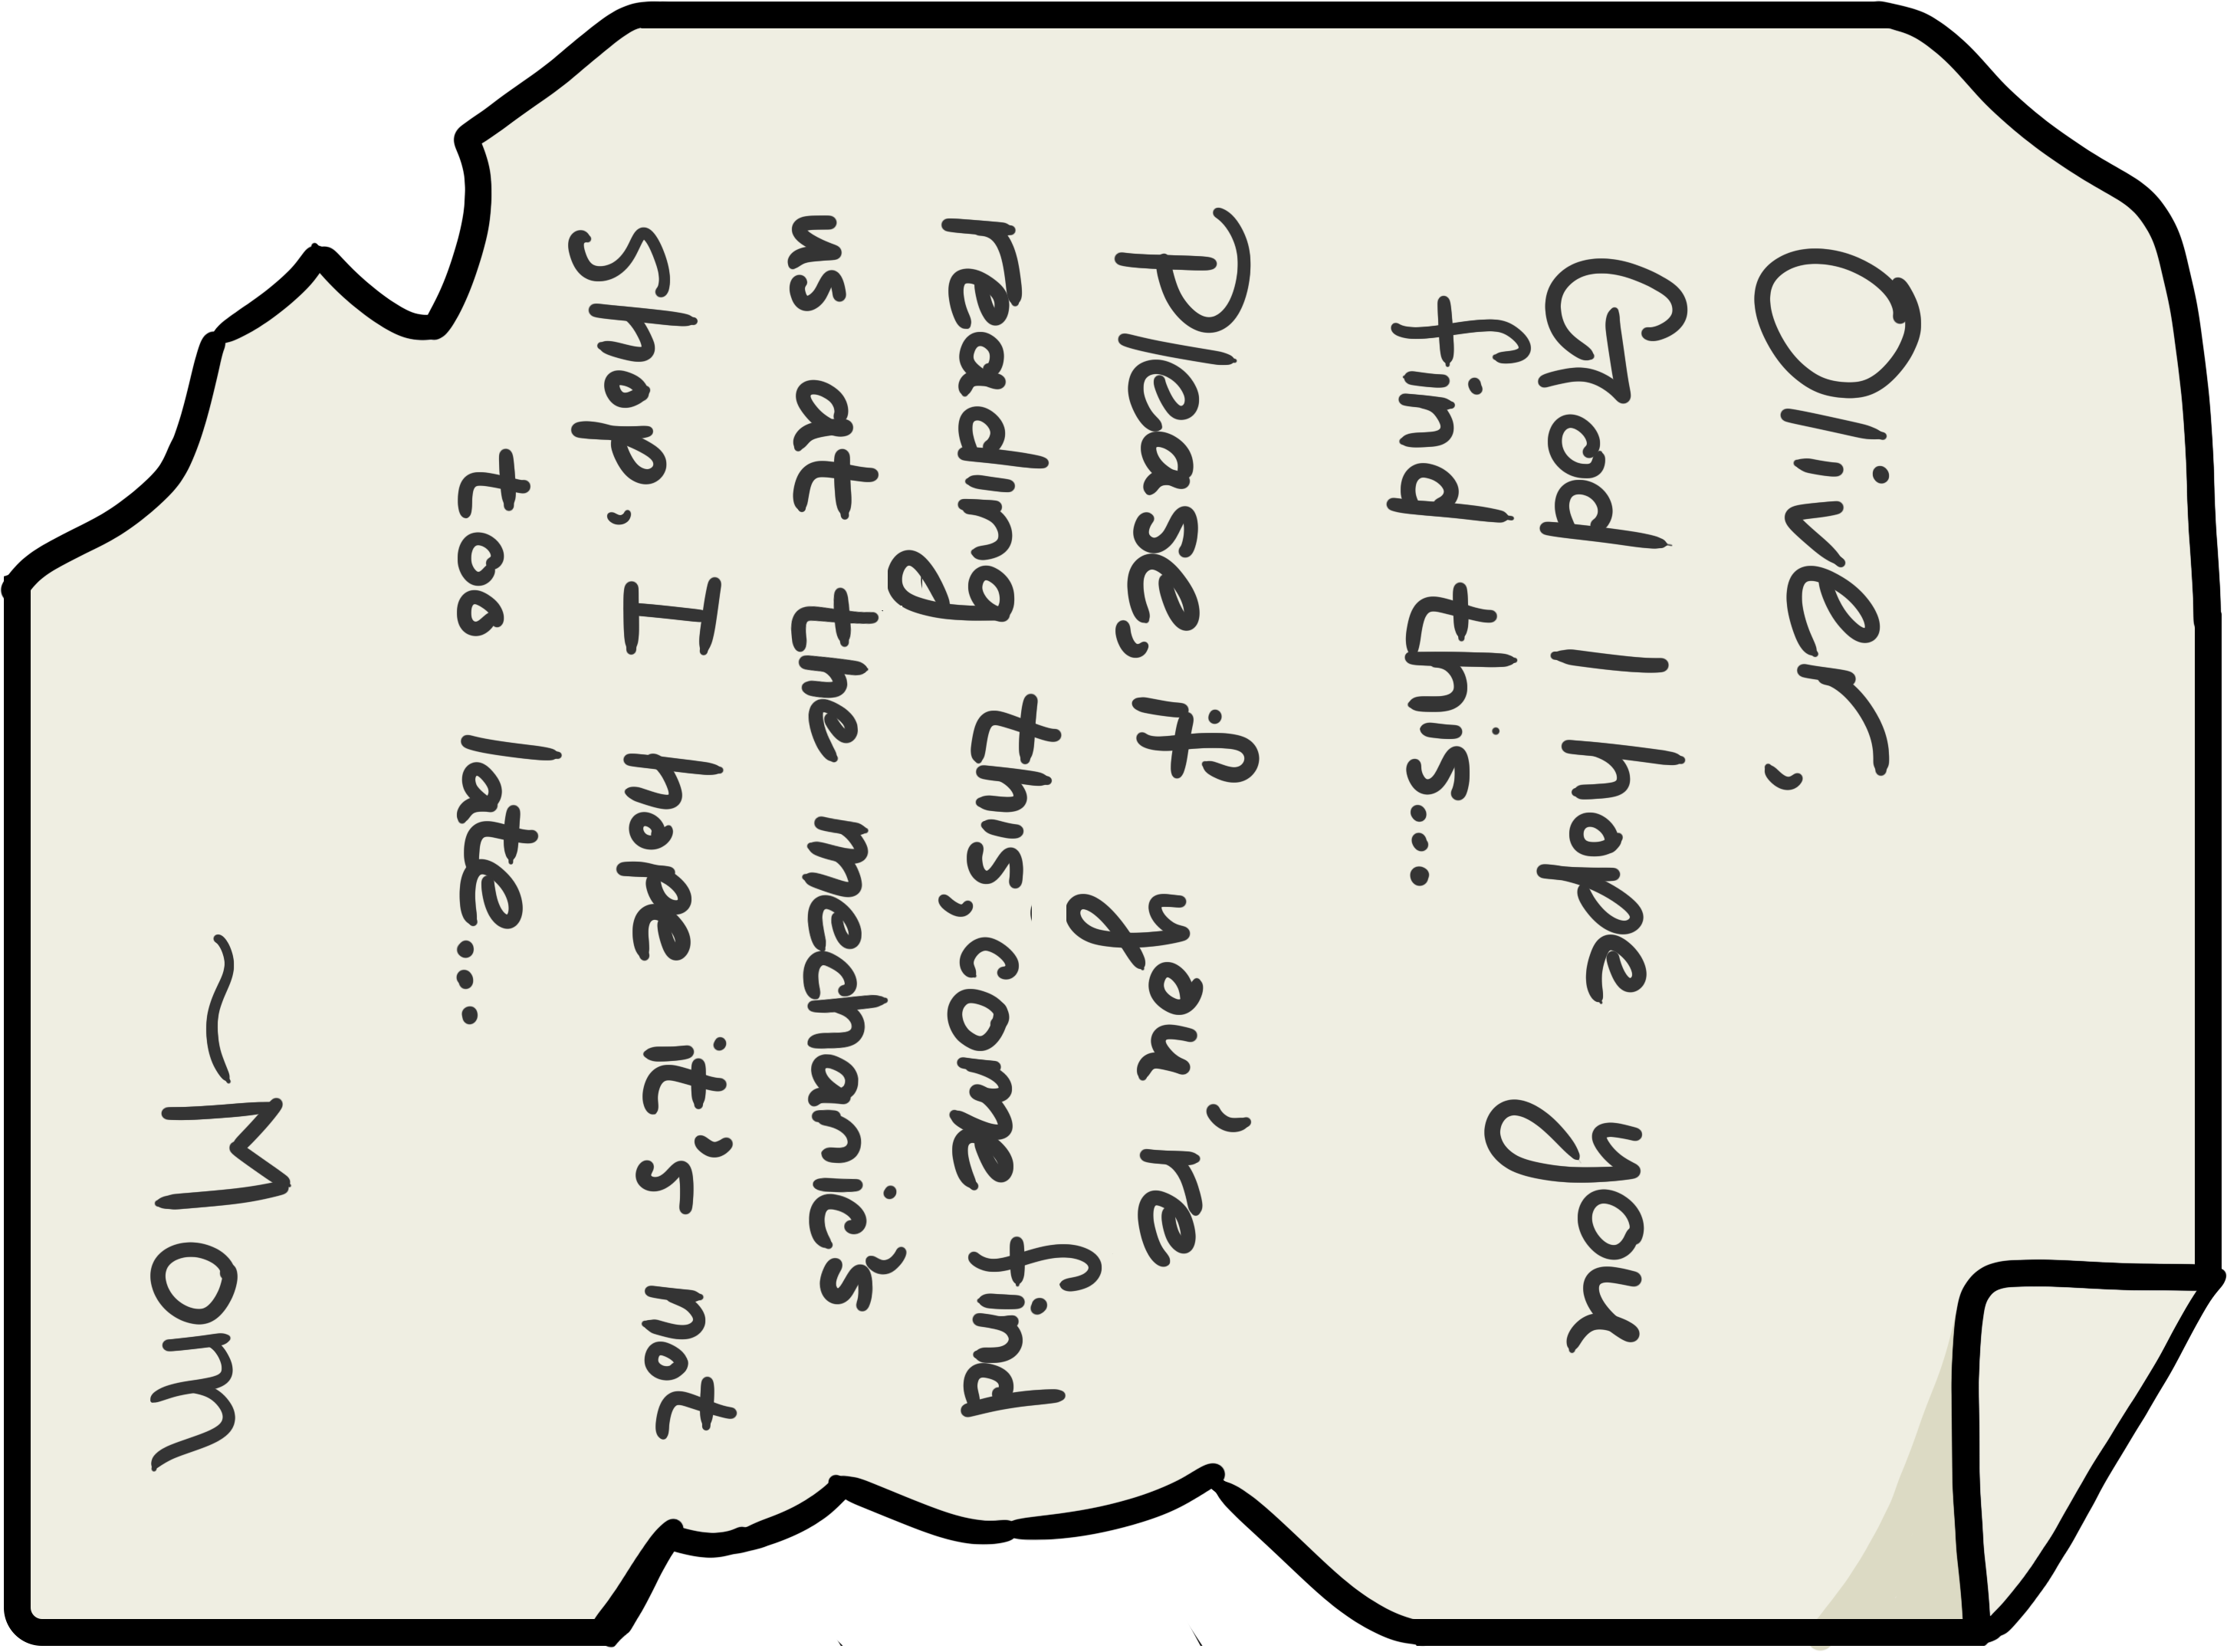 Oliver,
God I hope you
find this...
Please, if you're
reading this, come find
us at the mechanic's
Shop, I hope it's not
too late...
~Mom